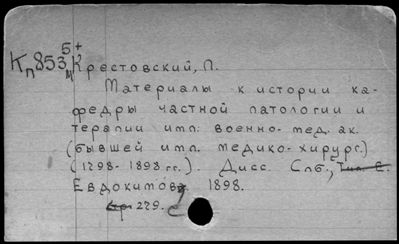 Кп853 5+
м Крестовский, П.
Материалы к истории ка-
федры частной патологии и
терапии имп. военно-мед. ак.
(бывшей имп. медико-хирург.)
(1798-1898 гг.). Дисс. Спб., Тип. Е.
Евдокимов, 1898.
стр 229.